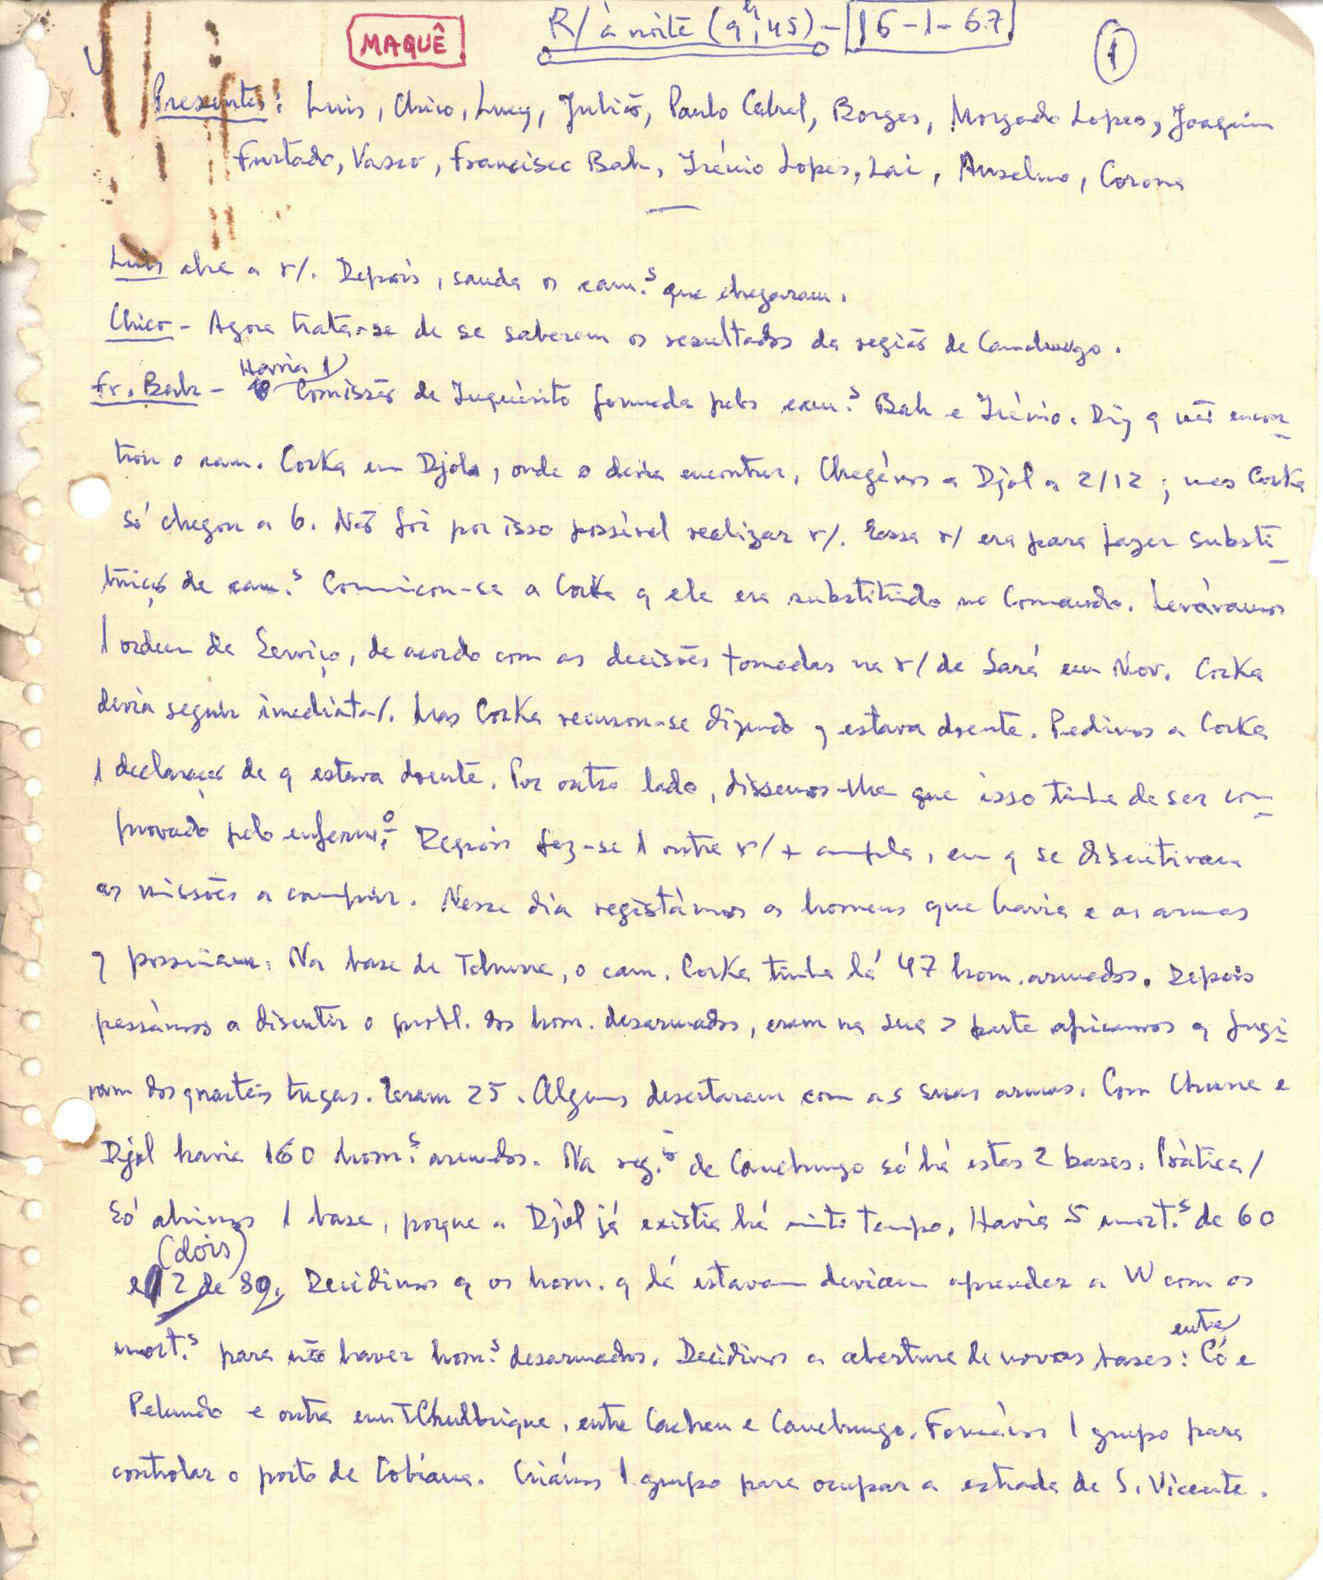 MAQUÊ
R/ à noite (9h,45) - 16-1-67
1
Presentes: Luis, Chico, Lucy, Julião, Paulo Cabral, Borges, Morgado Lopes, Joaquim
Furtado, Vasco, Francisco Bah, Irénio Lopes, Lai, Anselmo, Corona
Luis abre a r/. Depois, sauda os cam.s que chegaram.
Chico - Agora trata-se de se saberem os resultados da região de Canchungo.
Havia 1
Fr. Bah - Comissão de Inquérito formada pelos cam.s Bah e Irénio. Diz q não encon
trou o cam. Corka em Djola, onde o devia encontrar. Chegámos a Djol a 2/12; mas Corka
só chegou a 6. Não foi por isso possível realizar r/. Essa r/ era para fazer substi
tuição de cam.s Comunicou-se a Corka q ele era substituído no Comando. Levávamos
1 ordem de Serviço, de acordo com as decisões tomadas na r/ de Sará em Nov. Corka
devia seguir imediata/. Mas Corka recusou-se dizendo q estava doente. Pedimos a Corka
1 declaração de q estava doente. Por outro lado, dissemos-lhe que isso tinha de ser com
provado pelo enferm.o Depois fez-se 1 outra r/ + ampla, em q se discutiram
as missões a cumprir. Nesse dia registámos os homens que havia e as armas
q possuiam. Na base de Tchurne, o cam. Corka tinha lá 47 hom. armados. Depois
passámos a discutir o probl. dos hom. desarmados, eram na sua > parte africanos q fugi
ram dos quartéis tugas. Eram 25. Alguns desertaram com as suas armas. Com Churne e
Djol havia 160 hom.s armados. Na reg.ão de Canchungo só há estas 2 bases. Pràtica/
só abrimos 1 base, porque a Djol já existia há muito tempo. Havia 5 mort.s de 60
(dois)
e 2 de 82. Decidimos q os hom. q lá estavam deviam aprender a W com os
mort.s para não haver hom.s desarmados. Decidimos a abertura de novas bases: entre Có e
Pelundo e outra em TChulbrique, entre Cacheu e Canchungo. Formámos 1 grupo para
controlar o porto de Cobiana. Criámos 1 grupo para ocupar a estrada de S. Vicente.